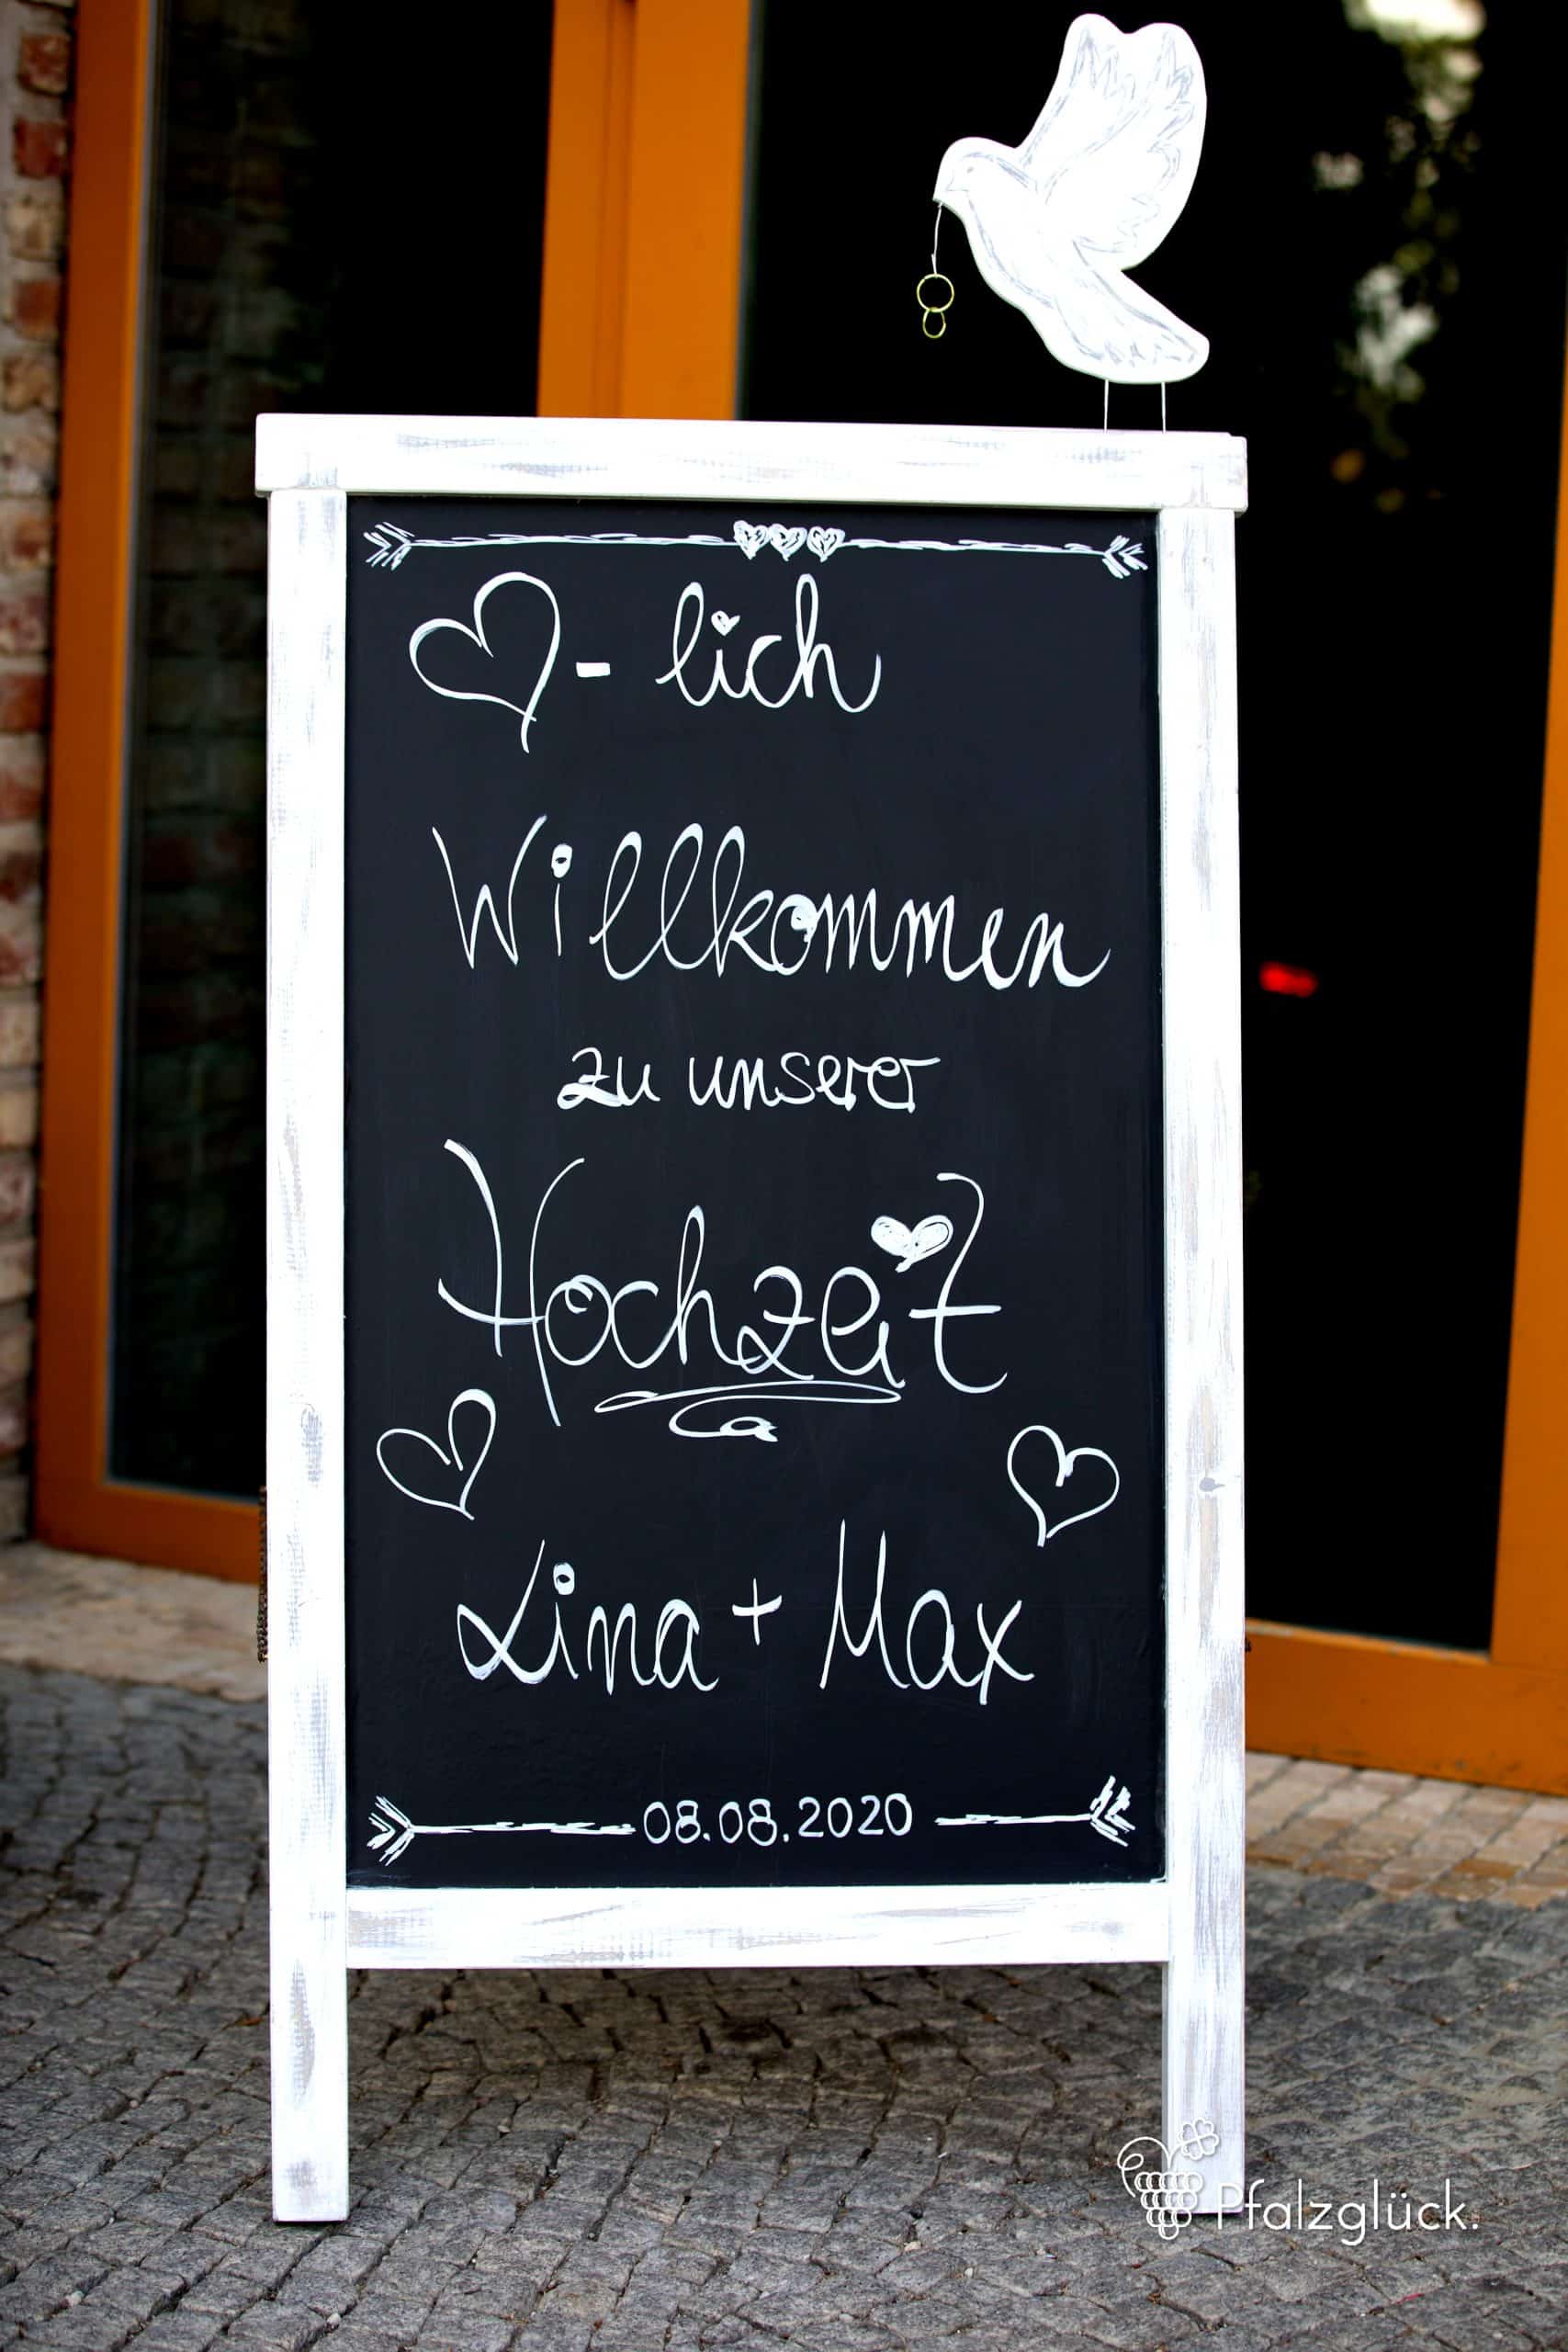 ♡- lich
Willkommen
zu unserer
Hochzeit
Lina + Max
08.08.2020
Pfalzglück.